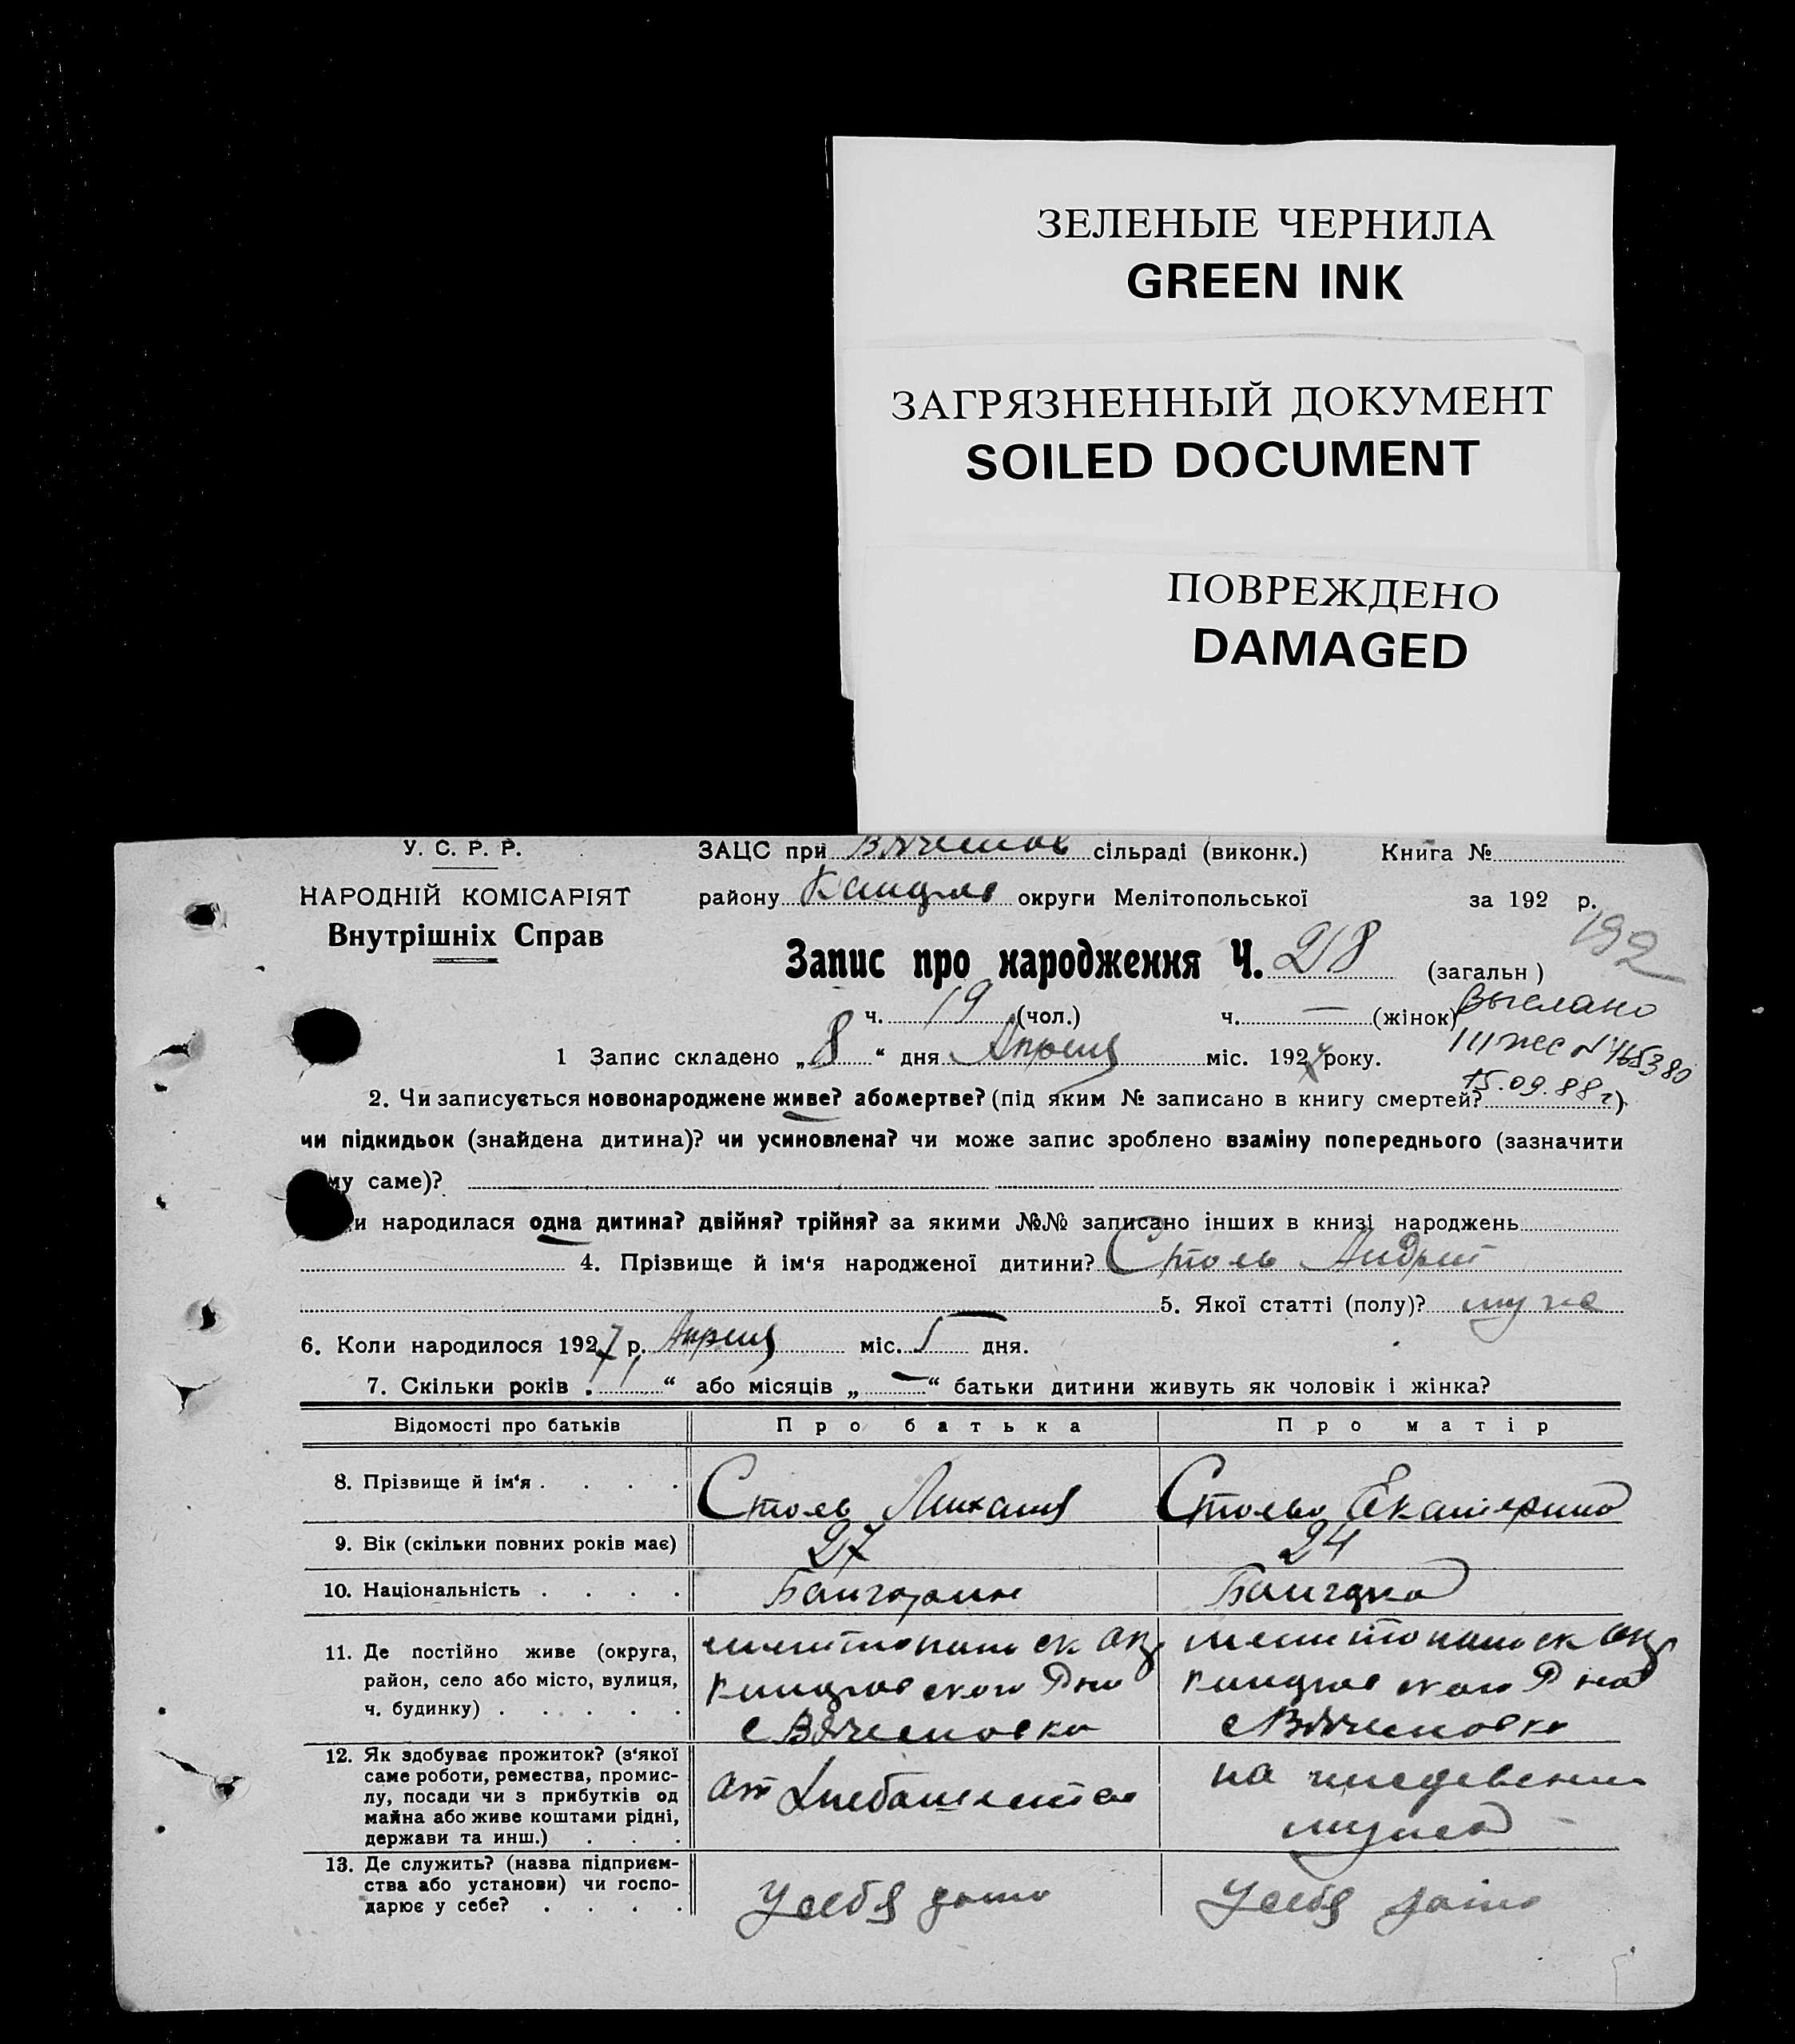 ЗЕЛЕНЫЕ ЧЕРНИЛА
GREEN INK
ЗАГРЯЗНЕННЫЙ ДОКУМЕНТ
SOILED DOCUMENT
ПОВРЕЖДЕНО
DAMAGED
У. С. Р. Р.
НАРОДНІЙ КОМІСАРІЯТ
Внутрішніх Справ
ЗАЦС при сільраді (виконк.) Книга №
району округи Мелітопольської за 192 р.
192
Запис про народження Ч. 28 (загальн )
ч. 19 (чол.) ч. — (жінок)
Выслано
№ 465380
15.09.88 г
1 Запис складено „ 8 “ дня Апреля міс. 1927 року.
2. Чи записується новонароджене живе? або мертве? (під яким № записано в книгу смертей? )
чи підкидьок (знайдена дитина)? чи усиновлена? чи може запис зроблено взаміну попереднього (зазначити
му саме)?
и народилася одна дитина? двійня? трійня? за якими №№ записано інших в книзі народжень
4. Прізвище й ім'я народженої дитини? Столь Андрей
5. Якої статті (полу)? муже
6. Коли народилося 1927 р. Апреля міс. 5 дня.
7. Скільки років „ 1 “ або місяців „ — “ батьки дитини живуть як чоловік і жінка?
Відомості про батьків Про батька Про матір
8. Прізвище й ім‘я . . . . Столь Михаил Столь Екатерина
9. Вік (скільки повних років має) 27 24
10. Національність . . . . Болгарин Болгарка
11. Де постійно живе (округа, район, село або місто, вулиця, ч. будинку) . . . . .
Мелитопольск окр Мелитопольск окр
ского Рна ского Рна
с Вячеславка с Вячеславка
12. Як здобуває прожиток? (з‘якої саме роботи, ремества, промислу, посади чи з прибутків од майна або живе коштами рідні, держави та инш.) . . .
от Хлебопашества на иждевении
мужа
13. Де служить? (назва підприємства або установи) чи господарює у себе? . . . .
У себя дома У себя дома